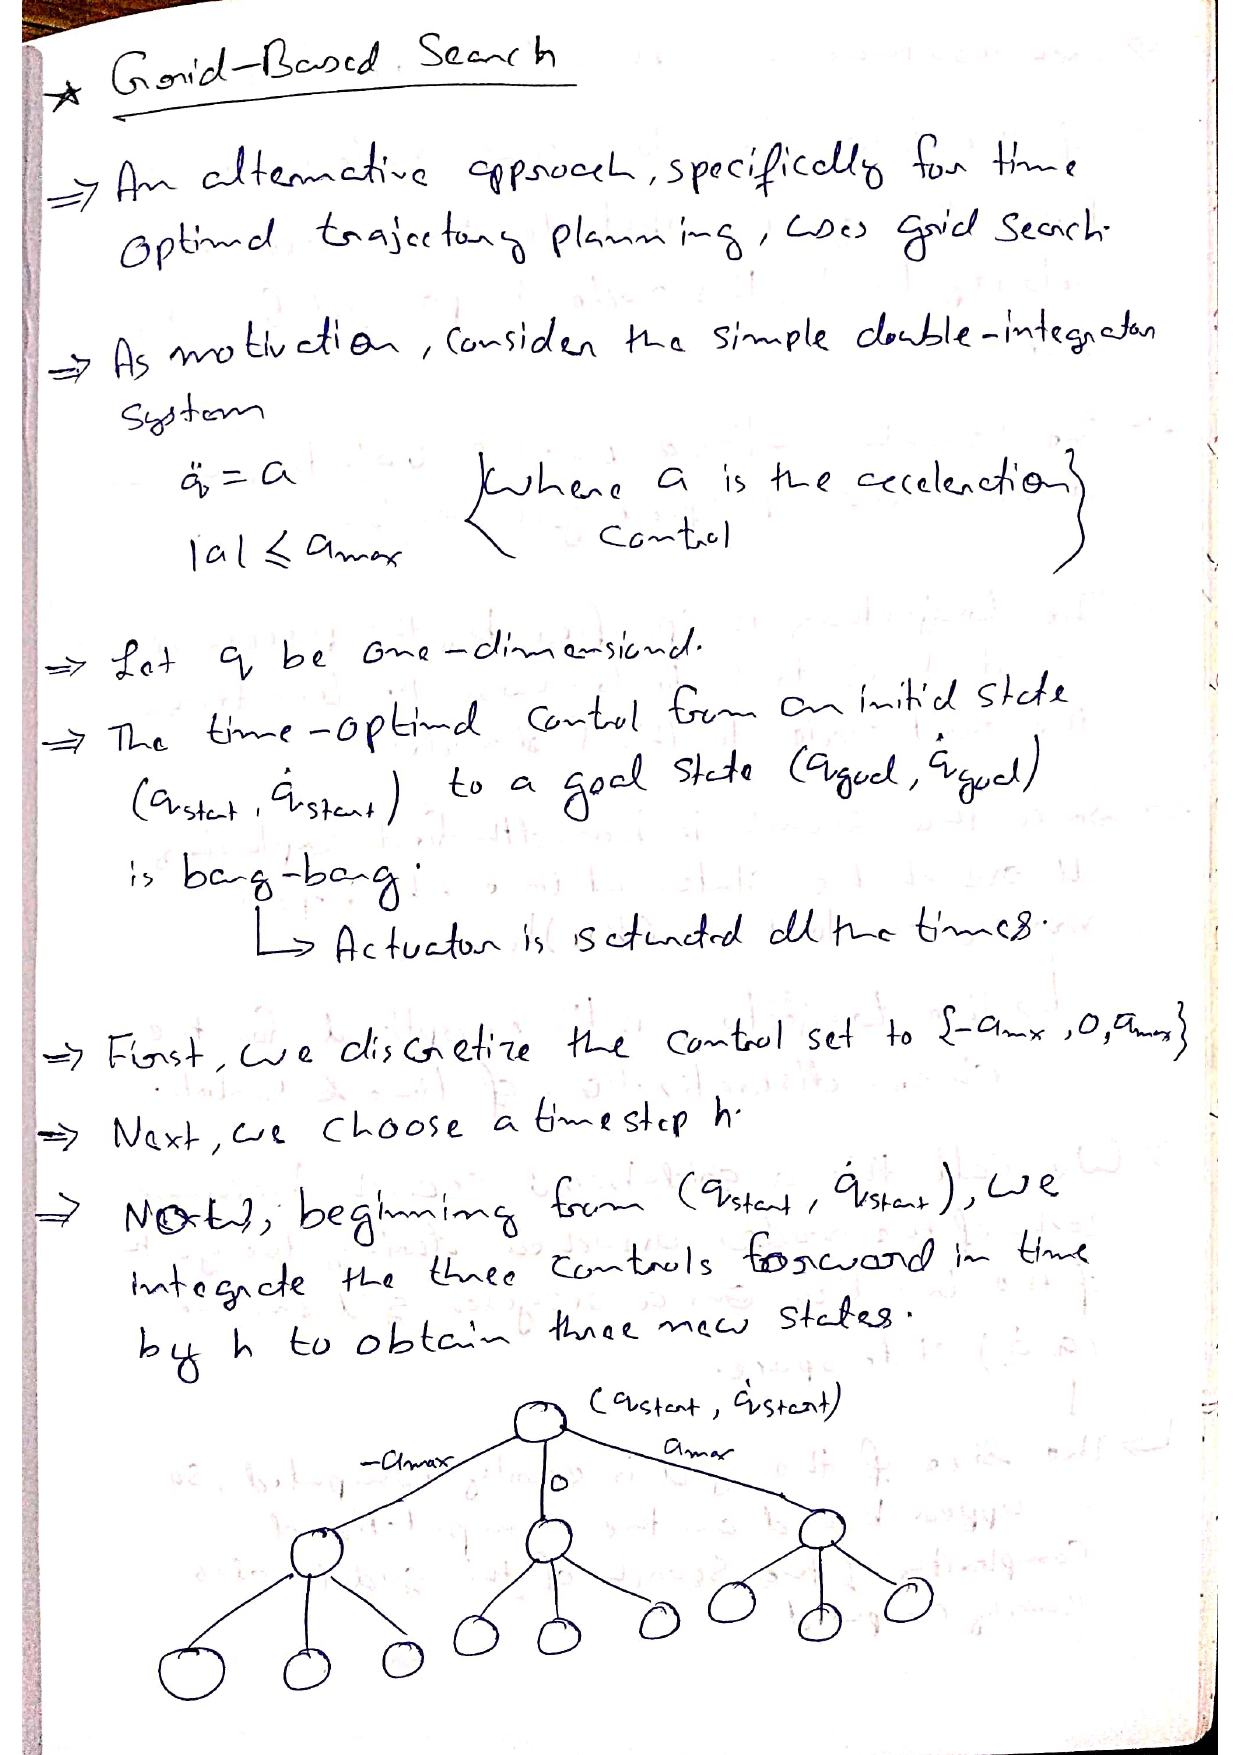 * Grid-Based Search
⇒ An alternative approach, specifically for time
optimal trajectory planning, uses grid search.
⇒ As motivation, consider the simple double-integrator
system
q̈ = a {where a is the acceleration}
|a| ≤ a_max control
⇒ Let q be one-dimensional.
⇒ The time-optimal control from an initial state
(q_start, q̇_start) to a goal state (q_goal, q̇_goal)
is bang-bang.
↳ Actuator is saturated all the times.
⇒ First, we discretize the control set to {-a_max, 0, a_max}
⇒ Next, we choose a timestep h.
⇒ Now, beginning from (q_start, q̇_start), we
integrate the three controls forward in time
by h to obtain three new states.
(q_start, q̇_start)
-a_max 0 a_max